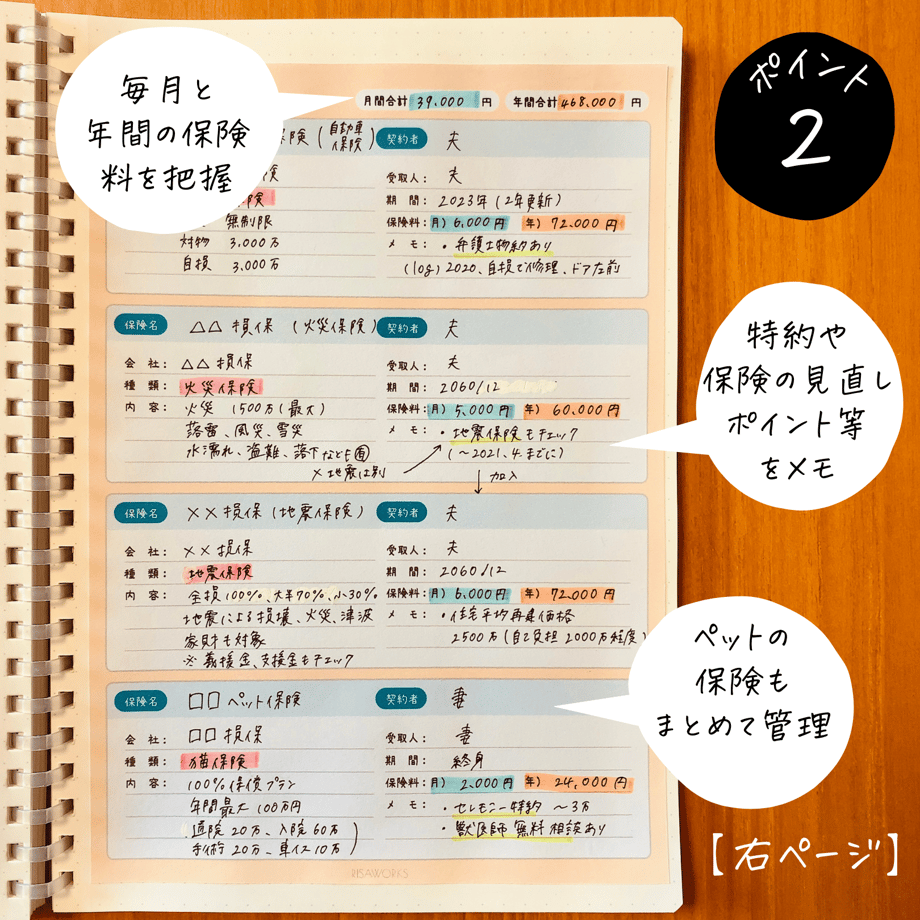 毎月と
年間の保険
料を把握
ポイント
2
月間合計 39,000 円 年間合計 468,000 円
険 (自動車保険) 契約者 夫
険
険
無制限
対物 3,000万
自損 3,000万
受取人: 夫
期 間: 2023年 (2年更新)
保険料: 月) 6,000円 年) 72,000円
メ モ: ・弁護士特約あり
(log) 2020、自損で修理、ドア左前
特約や
保険の見直し
ポイント等
をメモ
保険名 △△損保 (火災保険) 契約者 夫
会 社: △△損保
種 類: 火災保険
内 容: 火災 1500万 (最大)
落雷、風災、雪災
水濡れ、盗難、落下なども
×地震は別
受取人: 夫
期 間: 2060/12
保険料: 月) 5,000円 年) 60,000円
メ モ: ・地震保険もチェック
(〜2021.4.までに)
↓加入
保険名 ××損保 (地震保険) 契約者 夫
会 社: ××損保
種 類: 地震保険
内 容: 全損100%、大半70%、小30%
地震による損壊、火災、津波
家財も対象
※義援金、支援金もチェック
受取人: 夫
期 間: 2060/12
保険料: 月) 6,000円 年) 72,000円
メ モ: ・住宅平均再建価格
2500万 (自己負担2000万程度)
ペットの
保険も
まとめて管理
保険名 □□ペット保険 契約者 妻
会 社: □□損保
種 類: 猫保険
内 容: 100%保償プラン
年間最大100万円
(通院20万、入院60万
手術20万、車イス10万)
受取人: 妻
期 間: 終身
保険料: 月) 2,000円 年) 24,000円
メ モ: ・セレモニー特約 〜3万
・獣医師無料相談あり
RISAWORKS
【右ページ】